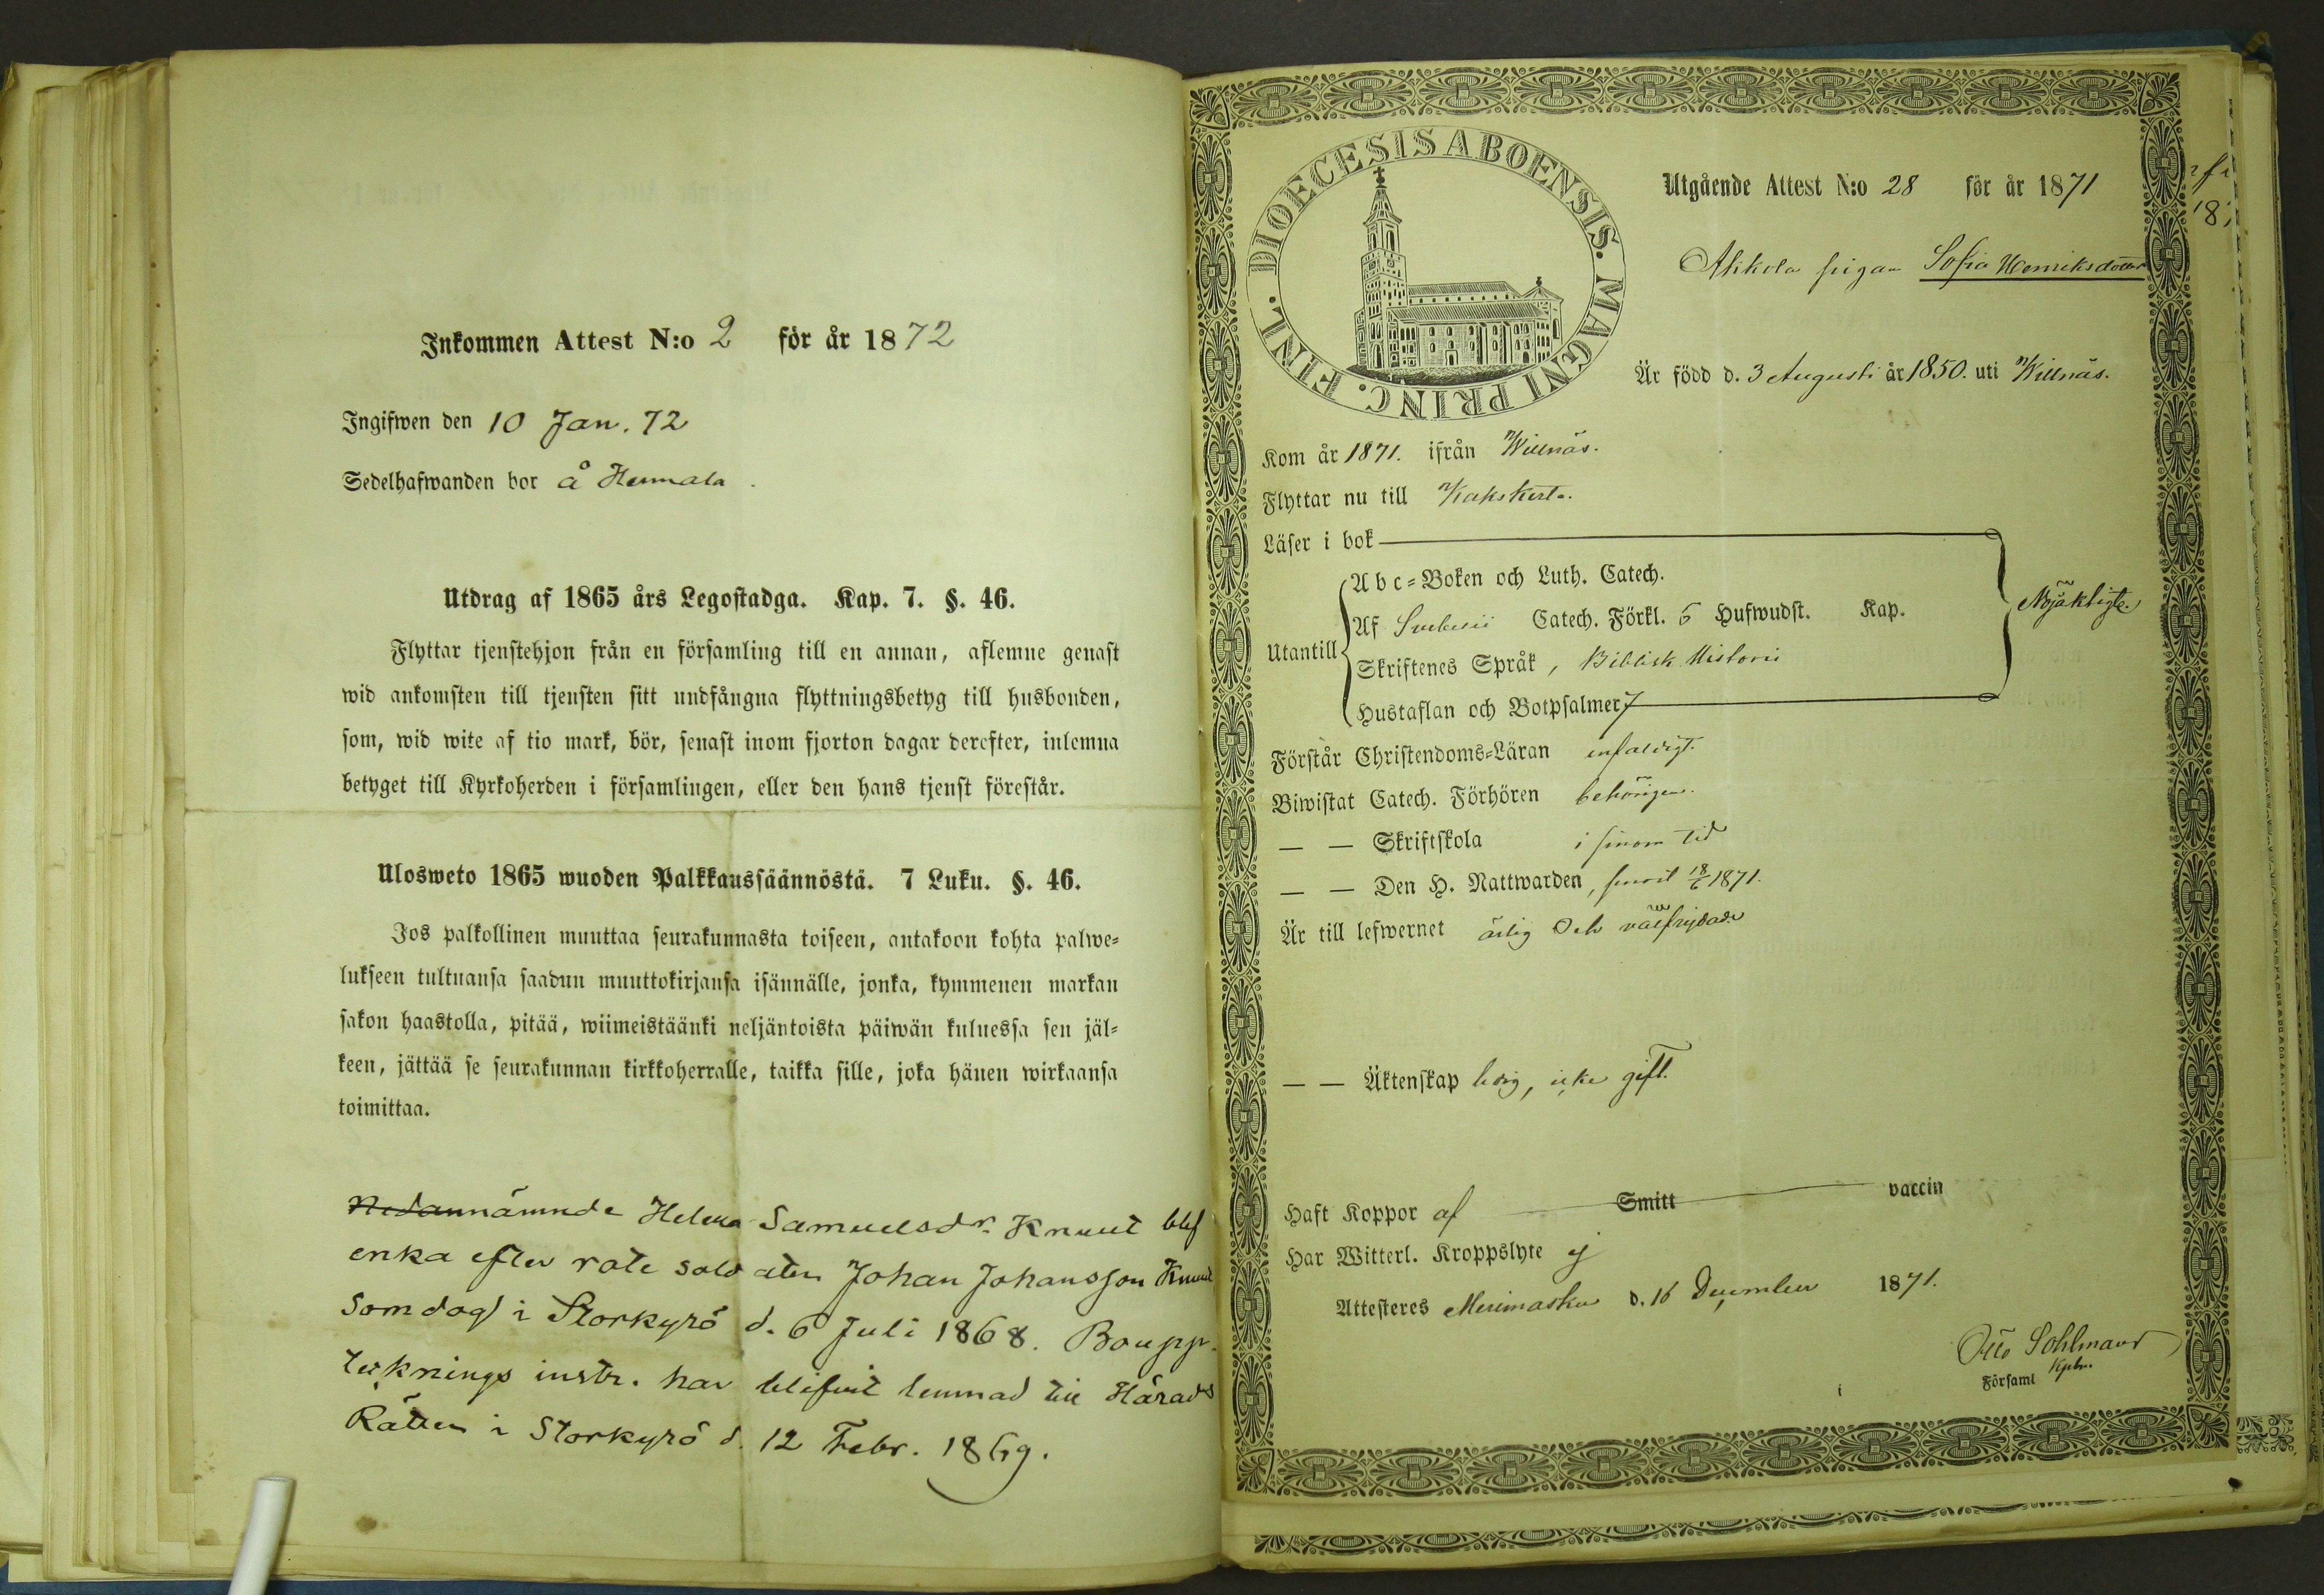 Inkommen Attest N:o 2 för år 1872
Ingifwen den 10 Jan. 72
Sedelhafwanden bor å Hemmala.
Utdrag af 1865 års Legostadga. Kap. 7. §. 46.
Flyttar tjenstehjon från en församling till en annan, aflemne genast
wid ankomsten till tjensten sitt undfångna flyttningsbetyg till husbonden,
som, wid wite af tio mark, bör, senast inom fjorton dagar derefter, inlemna
betyget till Kyrkoherden i församlingen, eller den hans tjenst förestår.
Ulosweto 1865 wuoden Palkkaussäännöstä. 7 Luku. §. 46.
Jos palkollinen muuttaa seurakunnasta toiseen, antakoon kohta palwe=
lukseen tultuansa saadun muuttokirjansa isännälle, jonka, kymmenen markan
sakon haastolla, pitää, wiimeistäänki neljäntoista päiwän kuluessa sen jäl=
keen, jättää se seurakunnan kirkkoherralle, taikka sille, joka hänen wirkaansa
toimittaa.
Nedannämnde Helena Samuelsdr. Knuut blef
enka efter rote soldaten Johan Johansson Knuut
som dog i Storkyrö d. 6 Juli 1868. Boupp
tecknings instr. har blifvit lemnad till Härads
Rätten i Storkyrö d. 12 Febr. 1869.
DIOECESIS ABOENSIS. MAGNI PRINC. FINL.
Utgående Attest N:o 28 för år 1871
pigan Sofia Henriksdotter
Är född d. 3 Augusti år 1850. uti Willnäs.
Kom år 1871. ifrån Willnäs.
Flyttar nu till Kakskerta.
Läser i bok
Abc=Boken och Luth. Catech.
Utantill Af Svebelii Catech. Förkl. 5 Hufwudst. Kap.
Skriftenes Språk, Biblisk Historie
Hustaflan och Botpsalmer 7
Nöjaktigt.
Förstår Christendoms=Läran enfaldigt.
Biwistat Catech. Förhören behörigen.
— — Skriftskola i sinom tid
— — Den H. Nattwarden, senast 18/6 1871.
Är till lefwernet ärlig och välfrejdad
— — Äktenskap ledig, icke gift.
Haft Koppor af Smitt vaccin
Har Witterl. Kroppslyte ej
Attesteres Merimasku d. 16 December 1871.
Otto Sohlman
Kpln.
i Församl